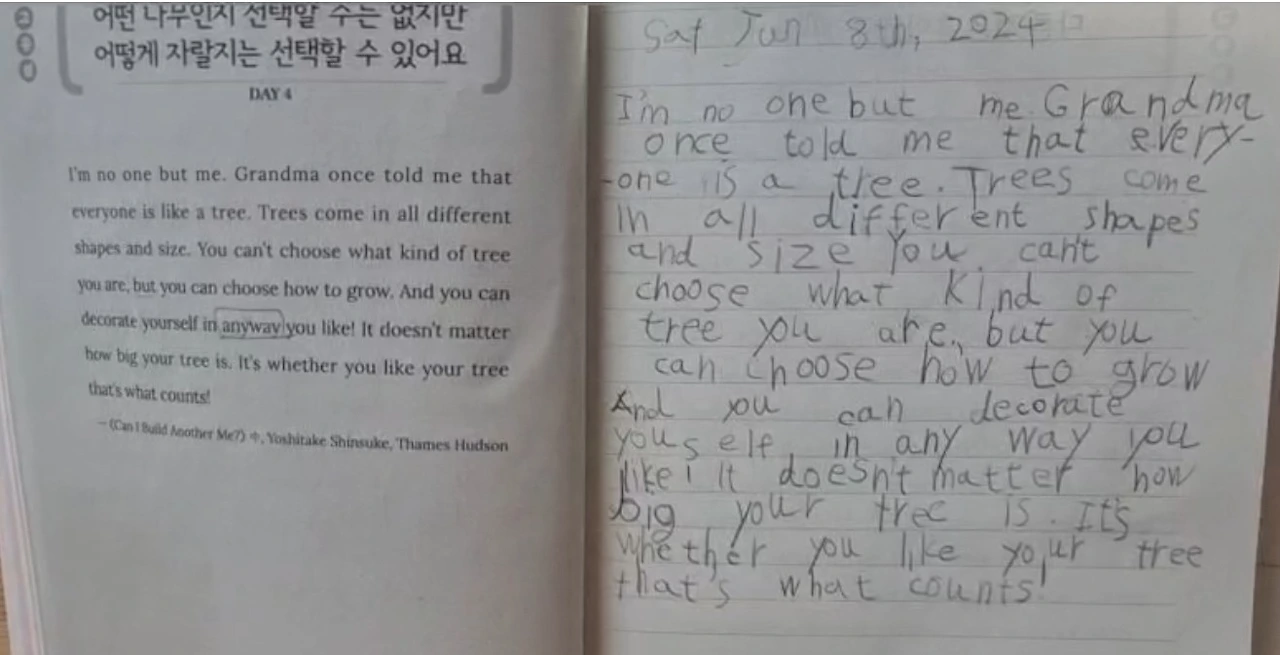 어떤 나무인지 선택할 수는 없지만
어떻게 자랄지는 선택할 수 있어요
DAY 4
I'm no one but me. Grandma once told me that
everyone is like a tree. Trees come in all different
shapes and size. You can't choose what kind of tree
you are, but you can choose how to grow. And you can
decorate yourself in anyway you like! It doesn't matter
how big your tree is. It's whether you like your tree
that's what counts!
- 《Can I Build Another Me?》 中, Yoshitake Shinsuke, Thames Hudson
Sat Jun 8th, 2024
I'm no one but me. Grandma
once told me that every-
-one is a tree. Trees come
in all different shapes
and size You can't
choose what kind of
tree you are, but you
can choose how to grow
And you can decorate
yourself in any way you
like! It doesn't matter how
big your tree is. It's
whether you like your tree
that's what counts!